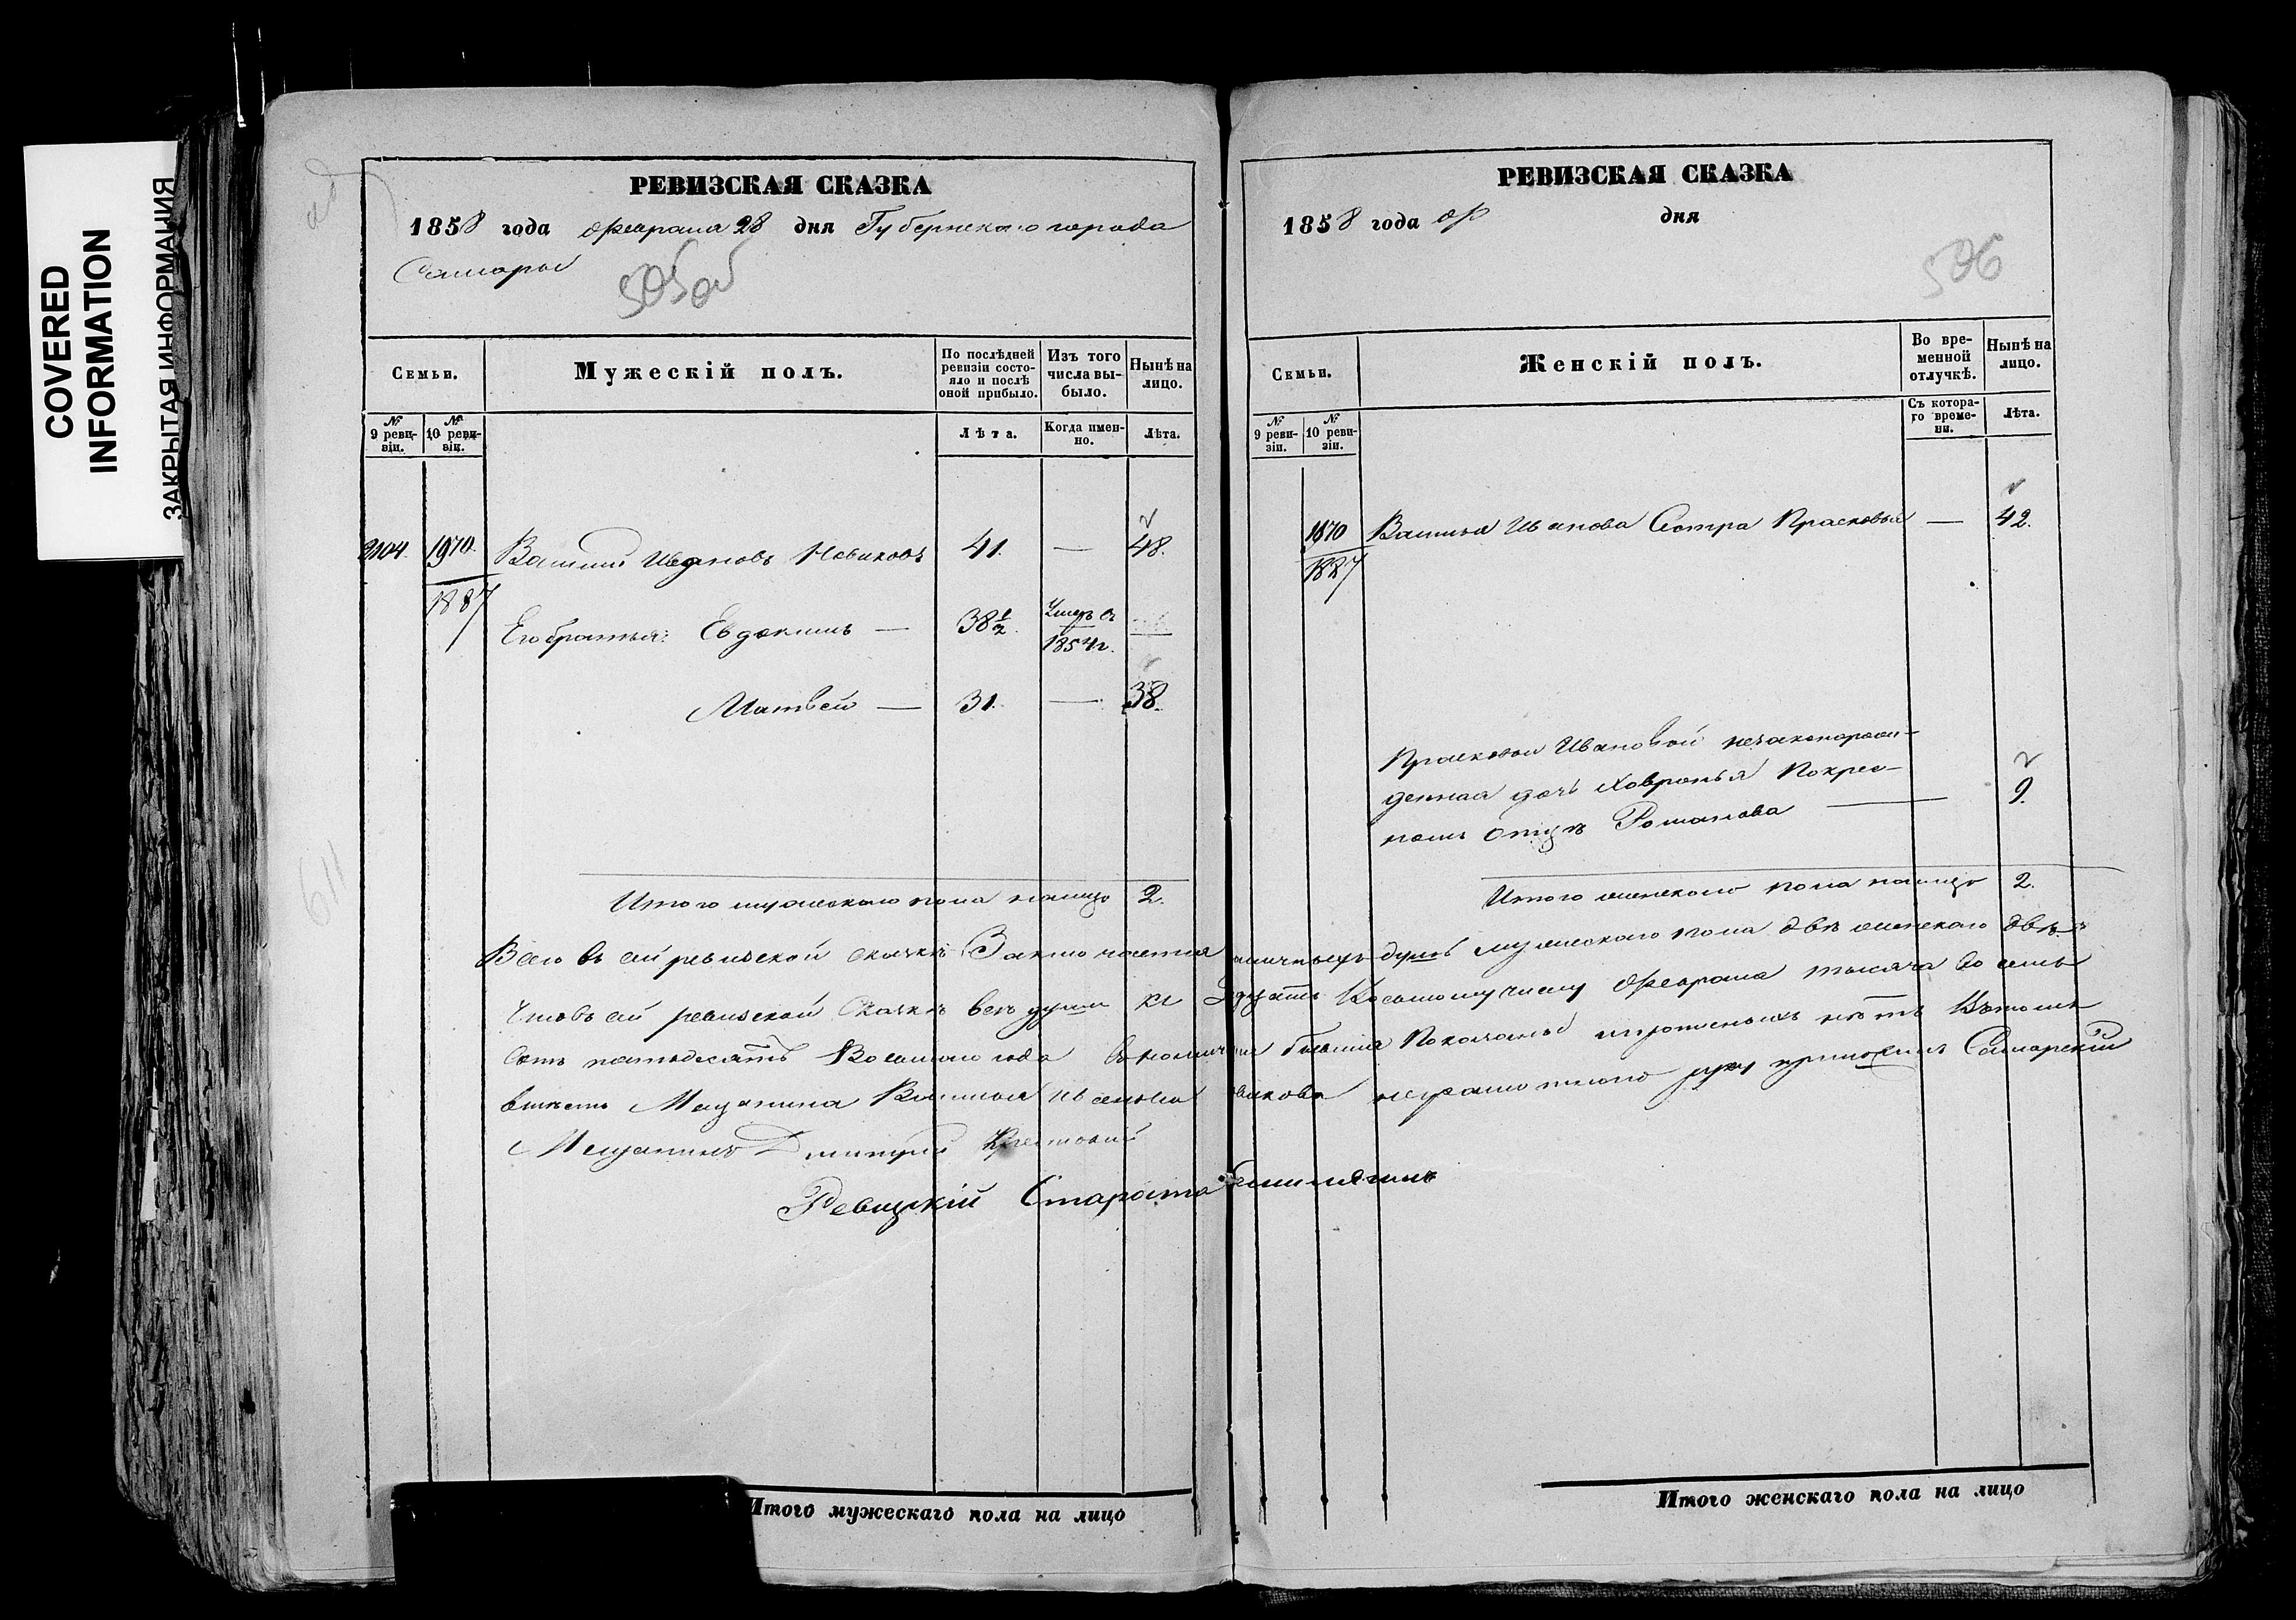 COVERED
INFORMATION
ЗАКРЫТАЯ ИНФОРМАЦИЯ
РЕВИЗСКАЯ СКАЗКА
1858 года Февраля 28 дня Губернскаго города
Самары
505об
Семьи.
Мужескій полъ.
По послѣдней ревизіи состояло и послѣ оной прибыло.
Изъ того числа выбыло.
Нынѣ на лицо.
№ 9 ревизіи.
№ 10 ревизіи.
Лѣта.
Когда именно.
Лѣта.
2104. 1970. Василій Ивановъ Новиковъ 41. — 48.
1887
Его братья: Евдокимъ — 38½. Умеръ въ 1854г.
Матвей — 31. — 38.
611
Итого мужескаго пола налицо 2.
РЕВИЗСКАЯ СКАЗКА
1858 года Ф дня
506
Семьи.
Женскій полъ.
Во временной отлучкѣ.
Нынѣ на лицо.
№ 9 ревизіи.
№ 10 ревизіи.
Съ котораго времени.
Лѣта.
1970 Василья Иванова Сестра Прасковья — 42.
1887
Прасковьи Ивановой незаконорож-
денная дочь Хавронья Покрес-
номъ Отцѣ Романова — 9.
Итого женскаго пола налицо 2.
Всего въ сей ревизской сказкѣ Заключается наличныхъ душъ мужескаго пола двѣ женскаго двѣ
Что въ сей ревизской Сказкѣ всѣ души къ Двадцать Восьмому числу Февраля тысяча во семь
Сотъ пятьдесятъ Восьмаго года Показаны нѣтъ Въ томъ
вмѣсто Мещанина Василья Новикова неграмотнаго руку приложилъ Самарскій
Мещанинъ Дмитрій
Ревизскій Староста
Итого мужескаго пола на лицо
Итого женскаго пола на лицо